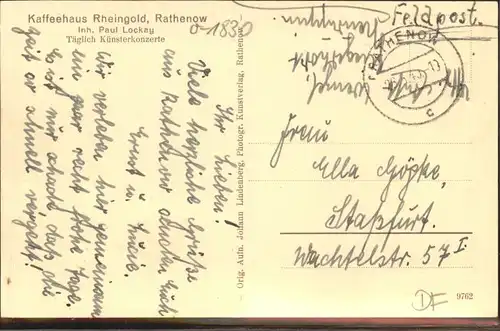 Kaffeehaus Rheingold, Rathenow
Inh. Paul Lockay
Täglich Künsterkonzerte
o 1830
Feldpost.
RATHENOW
c
Ihr Lieben!
Viele herzliche Grüße
aus Rathenow senden Euch
Ernst u. Luise.
Wir verleben hier gemeinsam
ein paar recht frohe Tage.
Es ist nur schade, daß die
Zeit so schnell vergeht!
Orig. Aufn. Johann Lindenberg, Photogr. Kunstverlag, Rathenow
Frau
Ella Göpke,
Staßfurt.
Wachtelstr. 57 I
DF
9762